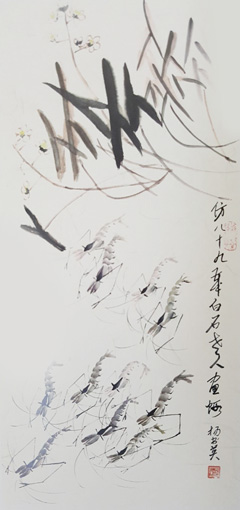 仿八十九年白石老人画虾 杨书英